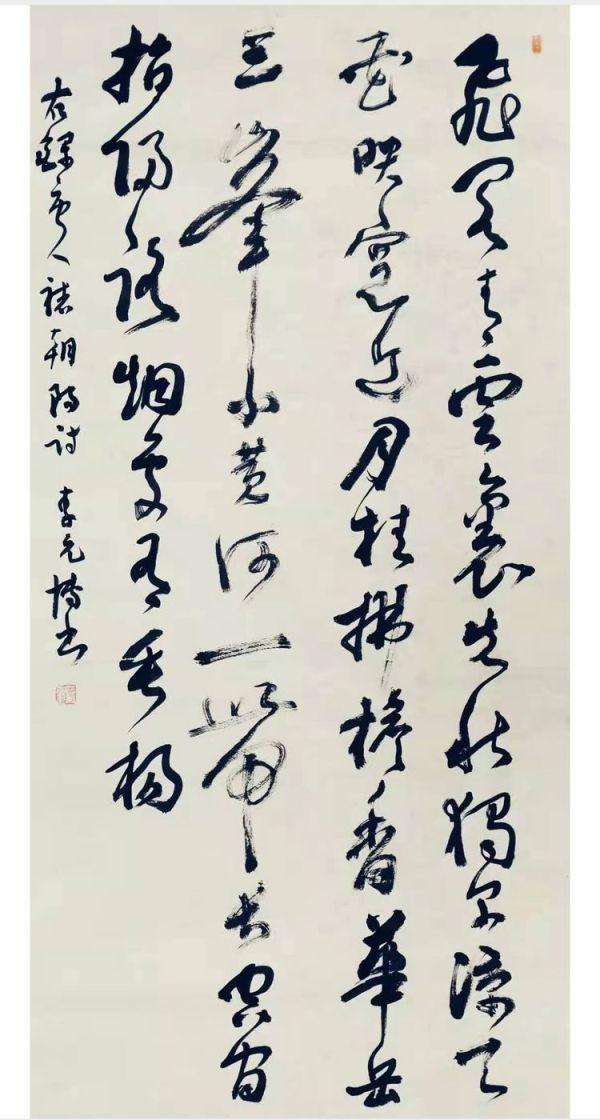 飛閣青雲裏先秋獨早涼天
花映窓近月桂拂檐香華岳
三峯小黄河一帶長空間
指歸路烟處有垂楊
右錄唐人褚朝陽詩 李元博書